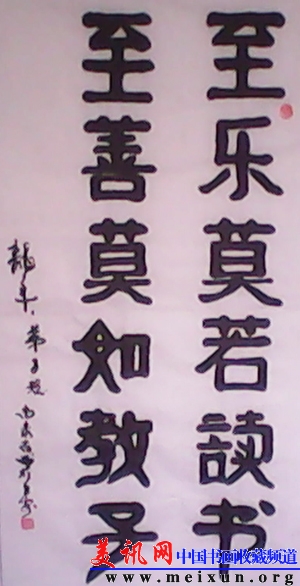 至乐莫若读书
至善莫如教子
龍年
美讯网 中国书画收藏频道
www.meixun.org